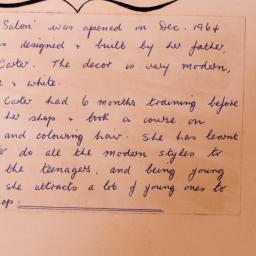 Salon' was opened in Dec. 1964
designed & built by her father,
Carter. The decor is very modern,
& white.
Carter had 6 months training before
her shop & took a course on
and colouring hair. She has learnt
do all the modern styles to
the teenagers, and being young
she attracts a lot of young ones to